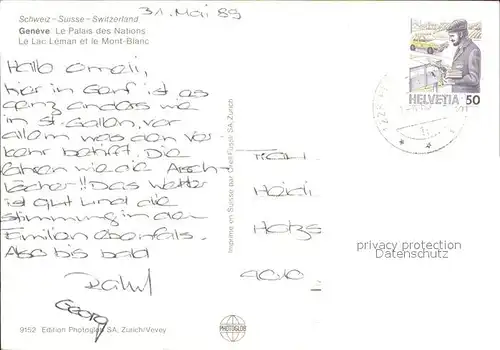 31. Mai 89
Schweiz – Suisse – Switzerland
Genève Le Palais des Nations
Le Lac Léman et le Mont-Blanc
Hallo Omeli,
hier in Genf ist es
ganz anders wie
in St-Gallen, vor
allem was den Ver-
kehr betrift. Die
fahren wie die Arsch-
löcher!! Das Wetter
ist gut und die
Stimmung in der
Familien ebenfalls.
Also bis bald
Georg
9152 Edition Photoglob SA, Zürich/Vevey
Imprimé en Suisse par Orell Füssli SA, Zurich
PHOTOGLOB
HELVETIA 50
Heidi
privacy protection
Datenschutz